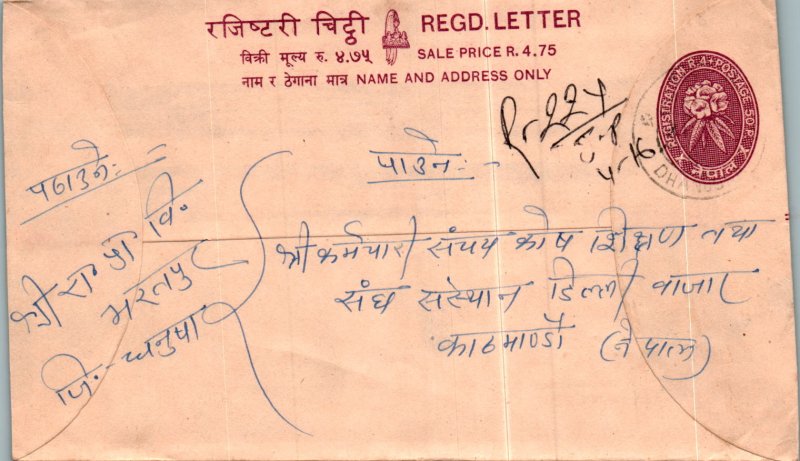 रजिष्टरी चिट्ठी REGD. LETTER
विक्री मूल्य रु. ४.७५ SALE PRICE R. 4.75
नाम र ठेगाना मात्र NAME AND ADDRESS ONLY
REGISTRATION POSTAGE 50 P.
नेपाल
R-224
पठाउने:
श्री रा प्रा वि.
भरतपुर
जि:- धनुषा
पाउने:-
श्री कर्मचारी संचय कोष शिक्षण तथा
संघ संस्थान डिल्ली बाजार
काठमाण्डौ (नेपाल)